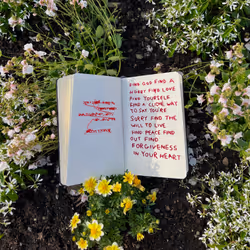 FIND GOD FIND A
HOBBY FIND LOVE
FIND YOURSELF
FIND A CLICHE WAY
TO SAY YOU'RE
SORRY FIND THE
WILL TO LIVE
FIND PEACE FIND
OUT FIND
FORGIVENESS
IN YOUR HEART